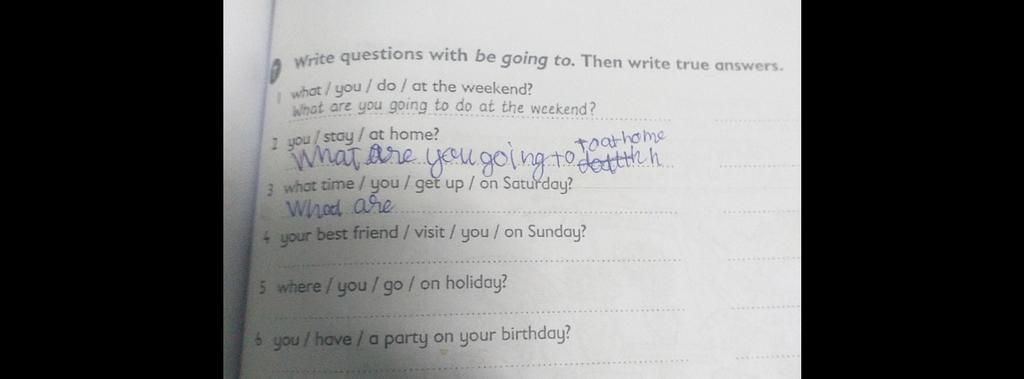 Write questions with be going to. Then write true answers.
1 what / you / do / at the weekend?
What are you going to do at the weekend?
2 you / stay / at home?
to at home
What are you going to
3 what time / you / get up / on Saturday?
What are
4 your best friend / visit / you / on Sunday?
5 where / you / go / on holiday?
6 you / have / a party on your birthday?